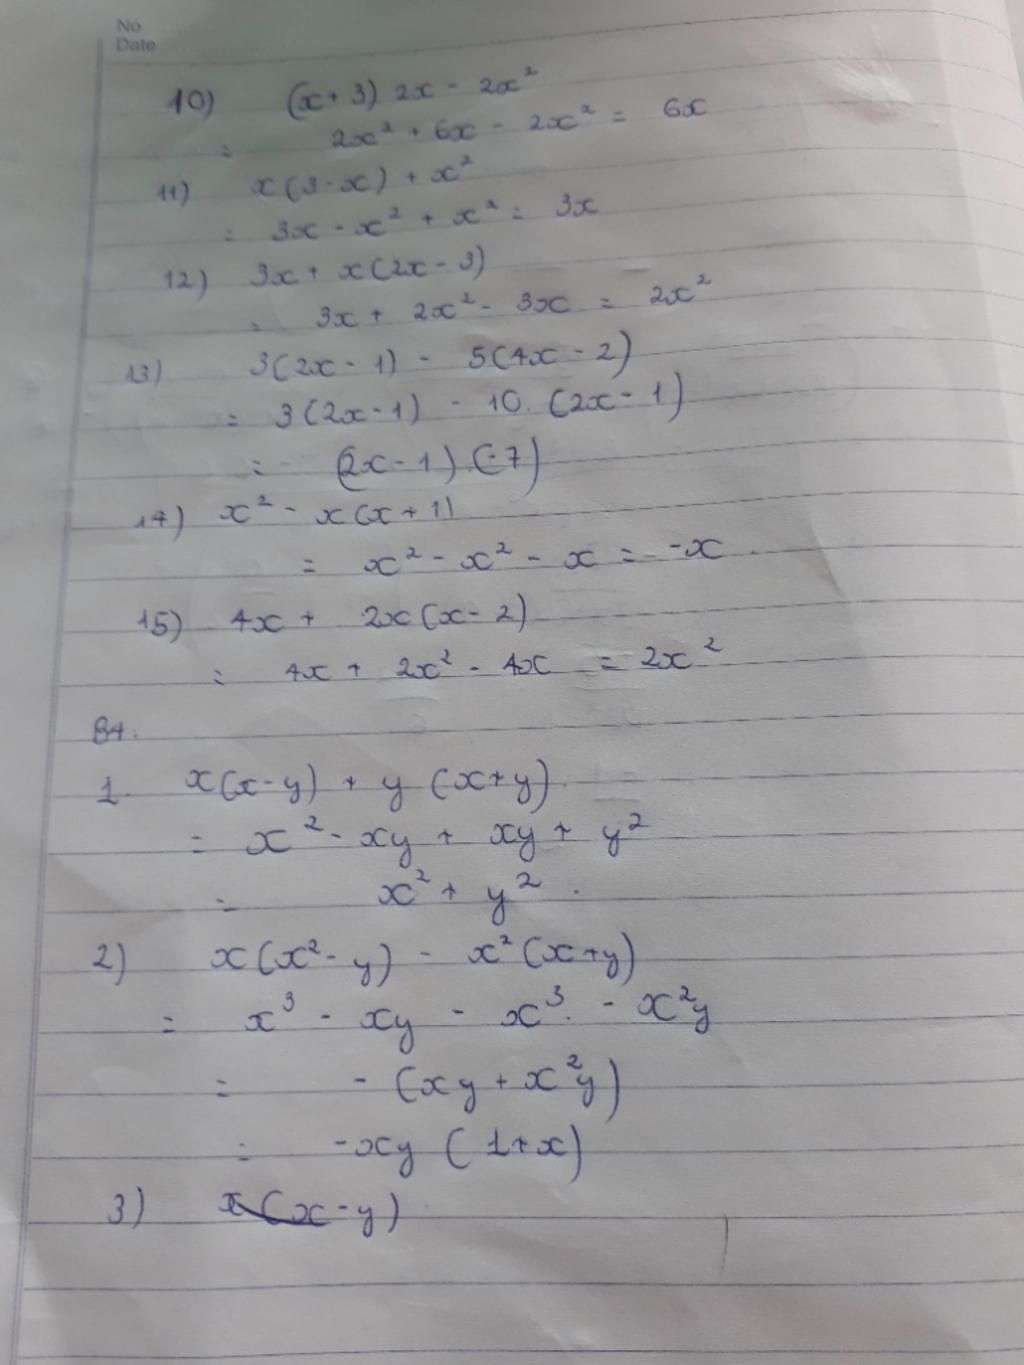 No.
Date
10) (x+3) 2x - 2x²
= 2x² + 6x - 2x² = 6x
11) x(3-x) + x²
= 3x - x² + x² = 3x
12) 3x + x(2x-3)
= 3x + 2x² - 3x = 2x²
13) 3(2x-1) - 5(4x-2)
= 3(2x-1) - 10.(2x-1)
= (2x-1).(-7)
14) x² - x(x+1)
= x² - x² - x = -x
15) 4x + 2x(x-2)
= 4x + 2x² - 4x = 2x²
B4.
1. x(x-y) + y(x+y)
= x² - xy + xy + y²
= x² + y².
2) x(x²-y) - x²(x+y)
= x³ - xy - x³ - x²y
= -(xy + x²y)
= -xy(1+x)
3) x(x-y)